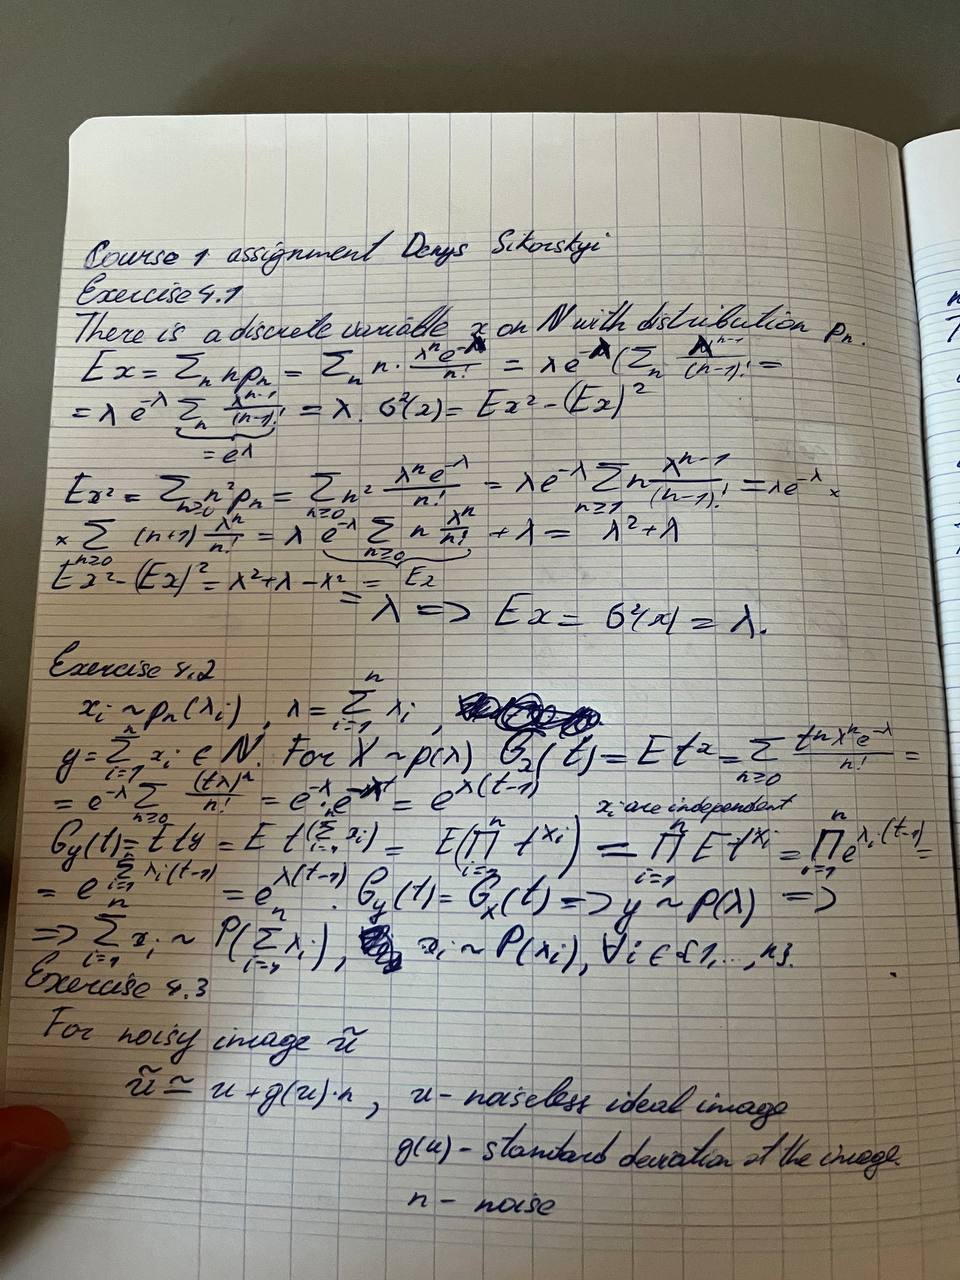 Course 1 assignment Denys Sikorskyi
Exercise 4.1
There is a discrete variable x on N with distribution pₙ.
Ex = Σₙ npₙ = Σₙ n · λⁿe^-λ/n! = λe^-λ (Σₙ λⁿ⁻¹/(n-1)! =
= λ e^-λ Σₙ λⁿ⁻¹/(n-1)! = λ. σ²(x) = Ex² - (Ex)²
= e^λ
Ex² = Σ_{n≥0} n² pₙ = Σ_{n≥0} n² λⁿe^-λ/n! = λe^-λ Σ_{n≥1} n λⁿ⁻¹/(n-1)! = λe^-λ ×
× Σ_{n≥0} (n+1) λⁿ/n! = λ e^-λ Σ_{n≥0} n λⁿ/n! + λ = λ² + λ
Ex² - (Ex)² = λ² + λ - λ² = Ex
= λ => Ex = σ²(x) = λ.
Exercise 4.2
xᵢ ~ pₙ(λᵢ), λ = Σ_{i=1}^n λᵢ,
y = Σ_{i=1}^n xᵢ ∈ N. For X ~ p(λ) Gₓ(t) = E t^x = Σ_{n≥0} tⁿλⁿe^-λ/n! =
= e^-λ Σ_{n≥0} (tλ)ⁿ/n! = e^-λ · e^λt = e^λ(t-1) xᵢ are independent
G_y(t) = E t^y = E t^(Σ_{i=1}^n xᵢ) = E(Π_{i=1}^n t^xᵢ) = Π_{i=1}^n E t^xᵢ = Π_{i=1}^n e^λᵢ(t-1) =
= e^Σ_{i=1}^n λᵢ(t-1) = e^λ(t-1). G_y(t) = Gₓ(t) => y ~ P(λ) =>
=> Σ_{i=1}^n xᵢ ~ P(Σ_{i=1}^n λᵢ), xᵢ ~ P(λᵢ), ∀i ∈ {1, ..., n}.
Exercise 4.3
For noisy image ũ
ũ ≃ u + g(u)·n, u - noiseless ideal image
g(u) - standard deviation of the image
n - noise